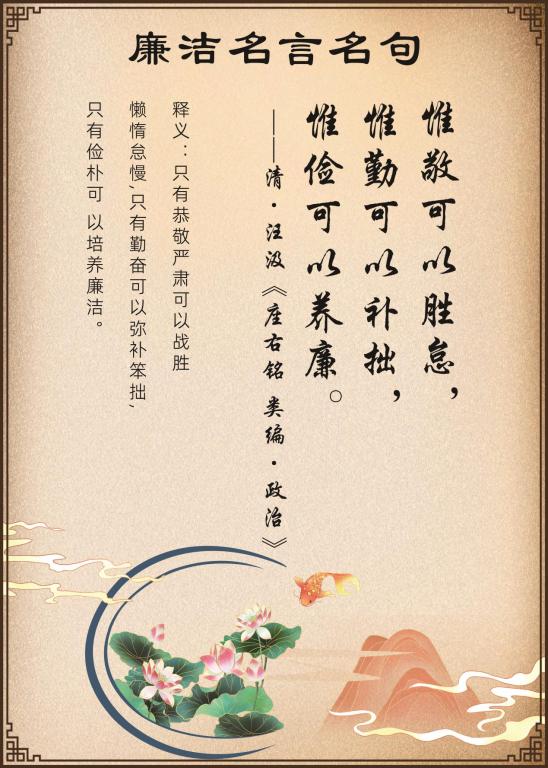 廉洁名言名句
惟敬可以胜怠，
惟勤可以补拙，
惟俭可以养廉。
——清·汪汲《座右铭类编·政治》
释义：只有恭敬严肃可以战胜
懒惰怠慢,只有勤奋可以弥补笨拙,
只有俭朴可 以培养廉洁。